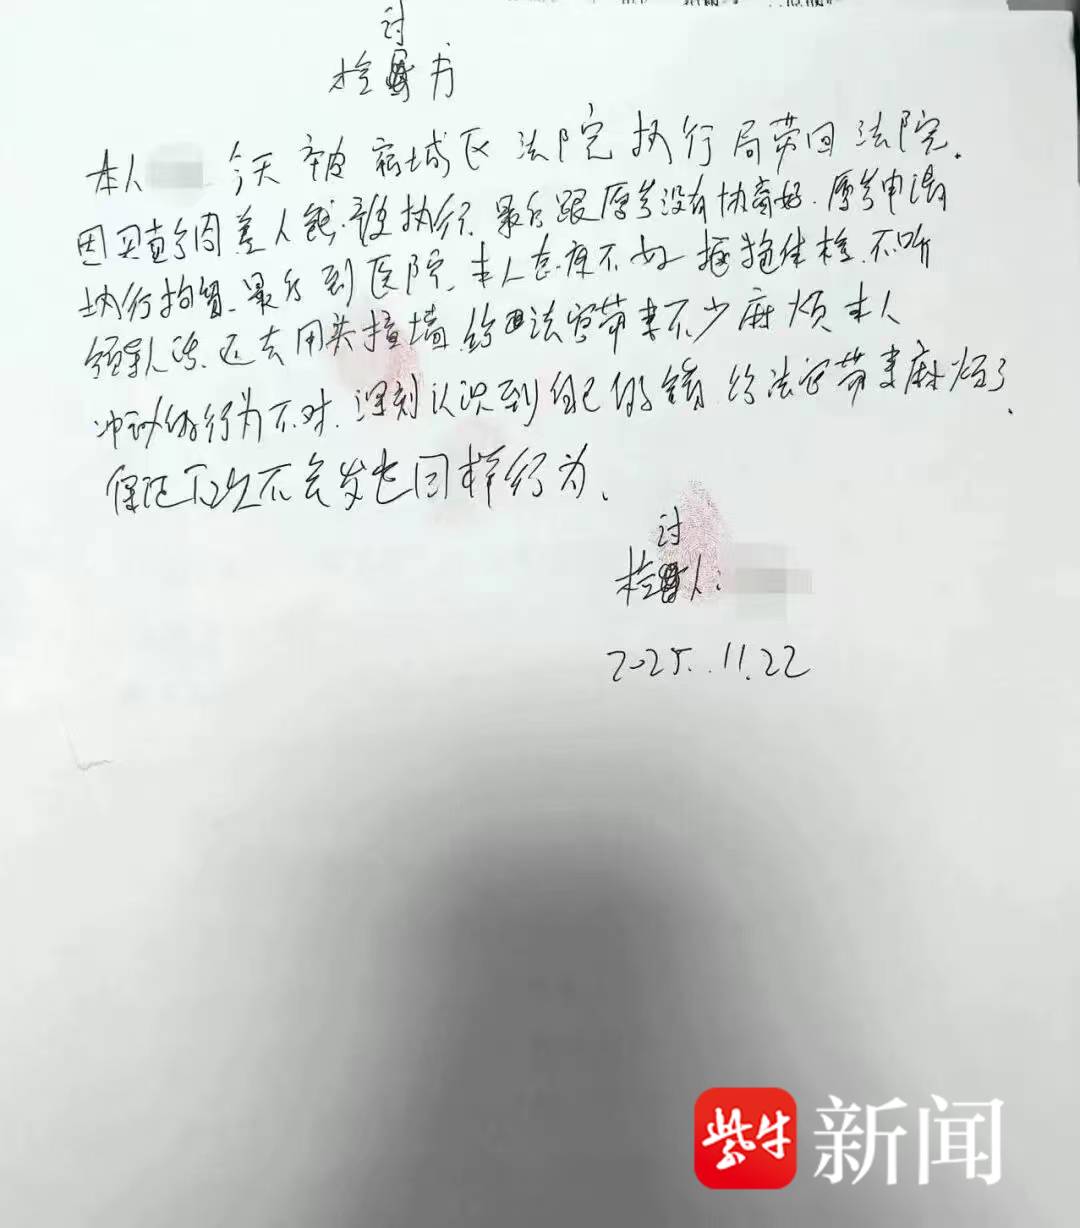 检讨书
本人 今天被宿城区法院执行局带回法院.
因买卖 差人钱.被执行.最后跟原告没有协商好.原告申请
执行拘留.最后到医院.本人态度不好 抵抱体检.不听
领导人话.还去用头撞墙.给 法官带来不少麻烦 本人
冲动的行为不对.深刻认识到自己的错.给法官带来麻烦了.
保证下次不会发生同样行为.
检讨人:
2025.11.22
紫牛新闻